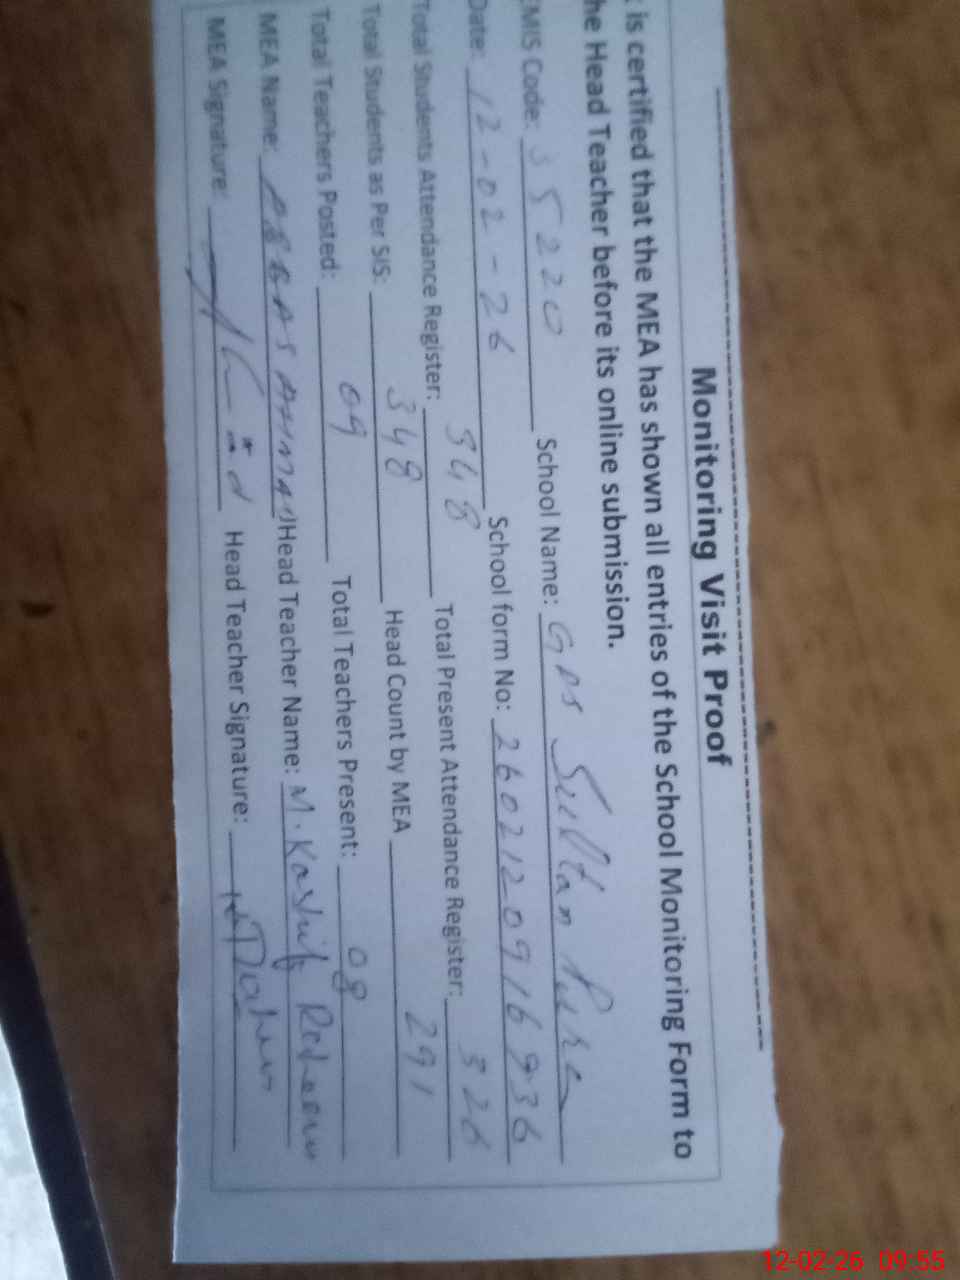 Monitoring Visit Proof
is certified that the MEA has shown all entries of the School Monitoring Form to
he Head Teacher before its online submission.
EMIS Code: 35220 School Name: GPS Sultan Pura
Date: 12-02-26 School form No: 2602120916936
Total Students Attendance Register: 348 Total Present Attendance Register: 326
Total Students as Per SIS: 348 Head Count by MEA 291
Total Teachers Posted: 09 Total Teachers Present: 08
MEA Name: AHMAD Head Teacher Name: M. Kashif
MEA Signature: Head Teacher Signature:
12-02-26 09:55